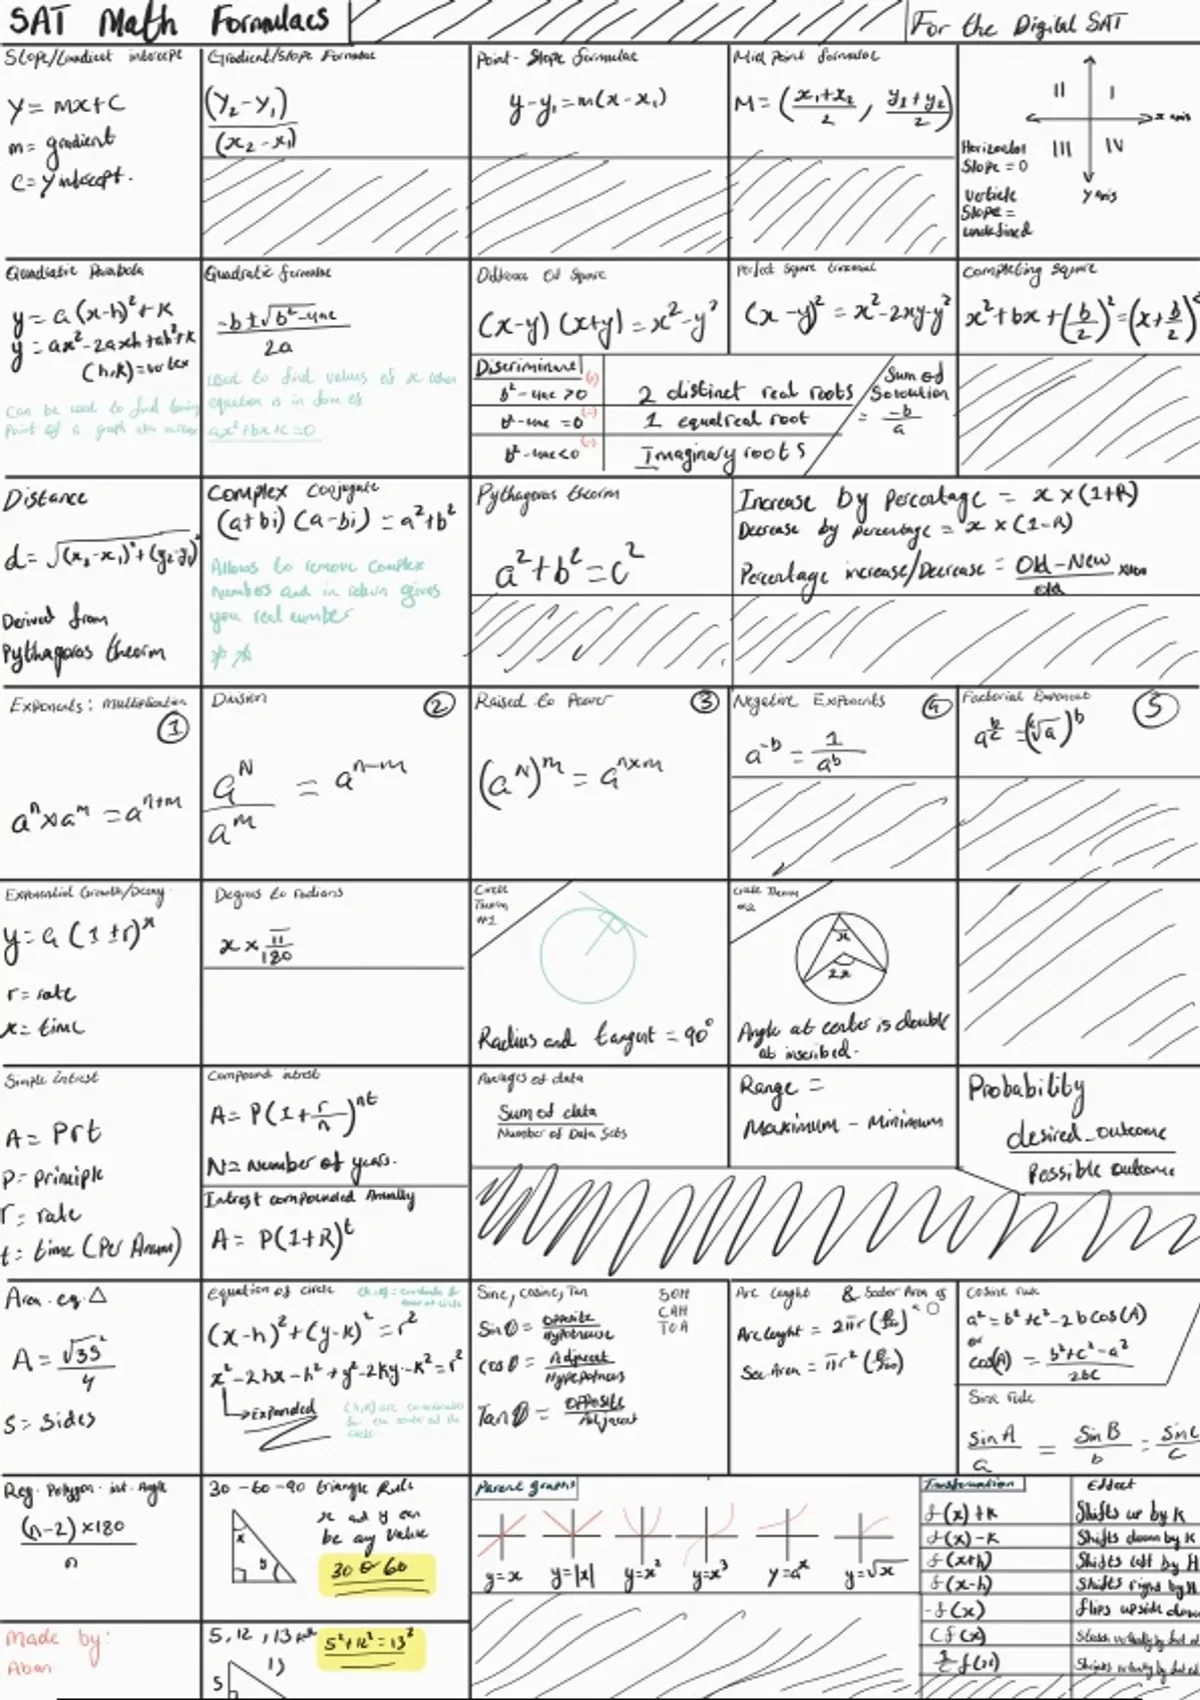 SAT Math Formulaes
For the Digital SAT
Slope/Gradient intercept
y = mx+c
m= gradient
c= y intercept.
Gradient/Slope Formulae
(y₂-y₁)
(x₂-x₁)
Point-Slope formulae
y-y₁=m(x-x₁)
Mid point formulae
M= (x₁+x₂/2, y₁+y₂/2)
II I
x axis
III IV
y axis
Horizontal
Slope = 0
Verticle
Slope =
undefined
Quadratic Parabola
y=a(x-h)²+k
y=ax²-2axh+ah²+k
(h,k)=vertex
Quadratic formulae
-b±√b²-4ac
2a
used to find values of x when
equation is in form of
ax²+bx+c=0
Difference of Square
(x-y)(x+y)=x²-y²
Perfect Square trinomial
(x-y)²=x²-2xy-y²
Completing square
x²+bx+(b/2)²=(x+b/2)²
Discriminant
b²-4ac>0 (+) 2 distinct real roots
b²-4ac=0 (=) 1 equal real root
b²-4ac<0 (-) Imaginary roots
Sum of
Solution
= -b/a
Distance
d=√(x₂-x₁)²+(y₂-y₁)²
Derived from
Pythagoras theorm
Complex Conjugate
(a+bi)(a-bi)=a²+b²
Allows to remove complex
numbers and in return gives
you real number
Pythagoras theorm
a²+b²=c²
Increase by Percentage = x×(1+R)
Decrease by Percentage = x×(1-R)
Percentage increase/Decrease = Old-New/old ×100
Exponents: Multiplication
1
aⁿ×aᵐ=aⁿ⁺ᵐ
Division
2
aᴺ/aᵐ = aⁿ⁻ᵐ
Raised to Power
3
(aᴺ)ᵐ=aⁿˣᵐ
Negative Exponents
4
a⁻ᵇ=1/aᵇ
Factorial Exponent
5
a^(b/c)=(ᶜ√a)ᵇ
Exponential Growth/Decay
y=a(1±r)ˣ
r=rate
x=time
Degrees to radians
x × π/180
Circle
Theorm
#1
Radius and tangent = 90°
Circle Theorm
#2
x
2x
Angle at center is double
at inscribed.
Simple Intrest
A= Prt
P= principle
r= rate
t= time (Per Anum)
Compound intrest
A=P(1+r/n)ⁿᵗ
N= Number of years.
Intrest compounded Anually
A= P(1+R)ᵗ
Averages of data
Sum of data
Number of Data Sets
Range =
Maximum - Minimum
Probability
desired outcome
Possible outcome
Area. eq. △
A= √3S²/4
S= sides
Equation of circle
(x-h)²+(y-k)²=r²
x²-2hx-h²+y²-2ky-k²=r²
Expanded
Sine, Cosine, Tan
SOH
CAH
TOA
Sin θ = Opposite/Hypotenuse
Cos θ = Adjacent/Hypotenuse
Tan θ = Opposite/Adjacent
Arc Lenght & Sector Area of
a ○
Arc Lenght = 2πr(θ/360)
Sec Area = πr²(θ/360)
Cosine rule
a²=b²+c²-2bcos(A)
or
cos(A) = b²+c²-a²/2bc
Sine rule
Sin A/a = Sin B/b = Sin C/c
Reg. Polygon. int. Angle
(n-2)×180
n
30-60-90 triangle Rule
x
y
x and y can
be any value
30 or 60
Parent graphs
y=x y=|x| y=x² y=x³ y=aˣ y=√x
Transformation Effect
f(x)+k Shifts up by k
f(x)-k Shifts down by k
f(x+h) Shifts left by H
f(x-h) Shifts right by H
-f(x) flips upside down
Cf(x)
1/c f(x)
Made by:
Aban
5, 12, 13
5²+12²=13²
13
5